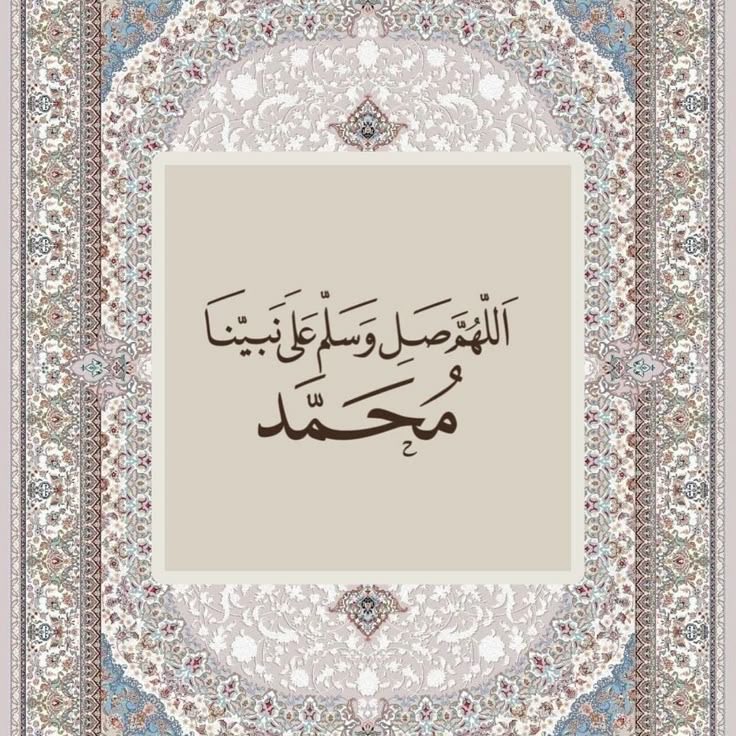 اَللّهُمَّ صَلِ وَسَلِّم عَلَى نَبيّنَا
مُحَمَّد